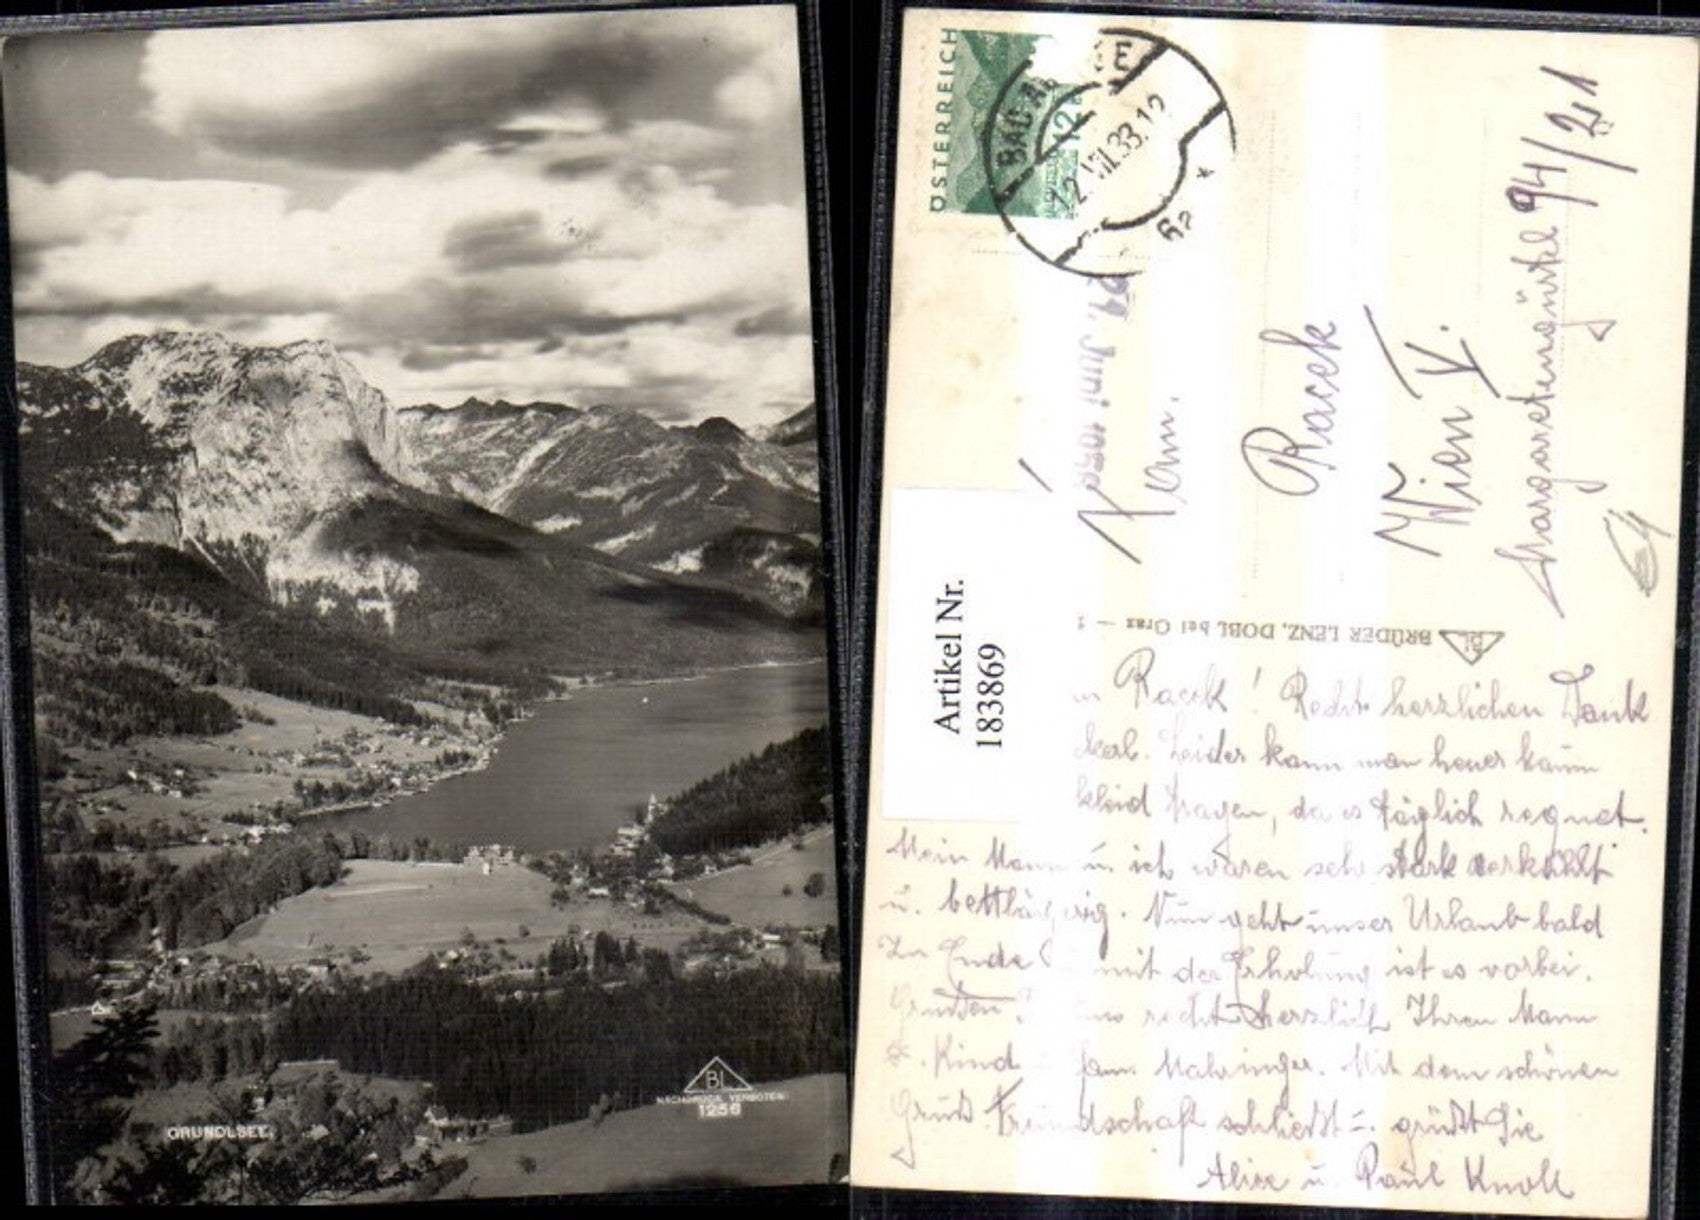 GRUNDLSEE.
BL
NACHDRUCK VERBOTEN
1256
ÖSTERREICH
12
BAD
22.VIII.33.12
Juni
Fam.
Racek
Wien V.
Margaretengürtel 94/2/1
Artikel Nr.
183869
BL BRÜDER LENZ, DOBL bei Graz – 1
Racek! Recht herzlichen Dank
Leider kann man heuer kaum
kleid tragen, da es täglich regnet.
Mein Mann u. ich waren sehr stark verkühlt
u. bettlägerig. Nun geht unser Urlaub bald
zu Ende mit der Erholung ist es vorbei.
recht herzlich Ihren Mann
u. Kind Fam. Mit dem schönen
Gruß Freundschaft schließt u. grüßt Sie
Alice u. Paul Knoll